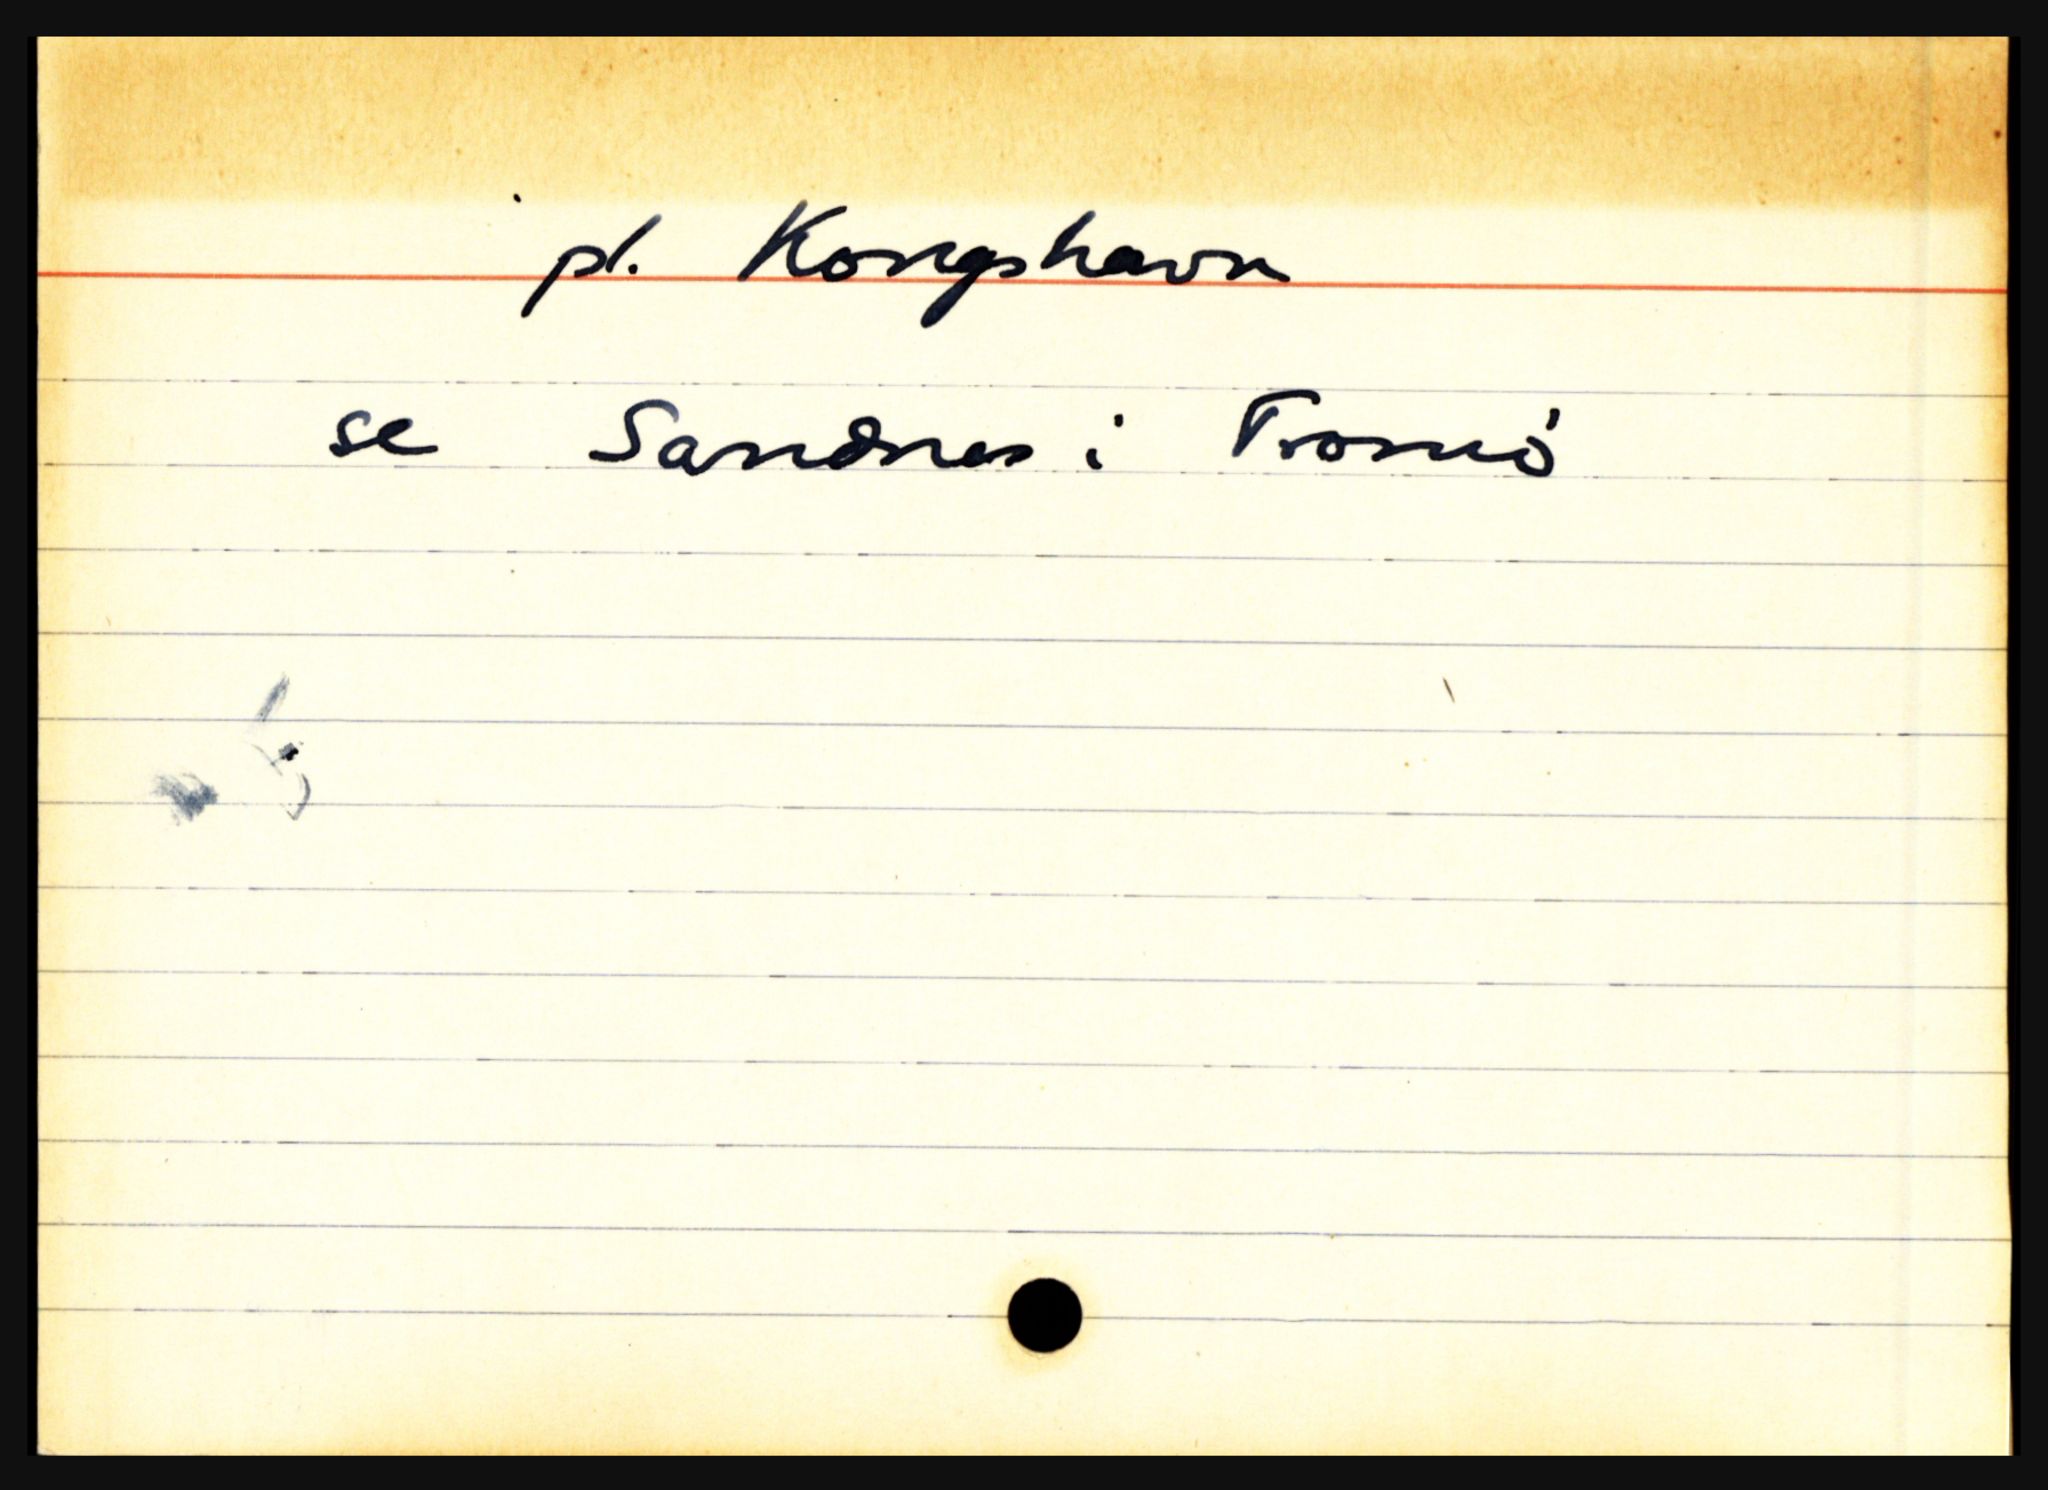 pl. Kongshavn
se Sandnes i Tromö